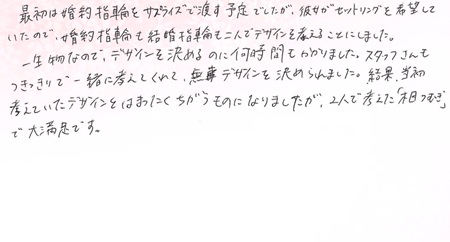 最初は婚約指輪をサプライズで渡す予定でしたが、彼女がセットリングを希望して
いたので、婚約指輪も結婚指輪も二人でデザインを考えることにしました。
一生物なので、デザインを決めるのに何時間もかかりました。スタッフさんも
つきっきりで一緒に考えてくれて、無事デザインを決められました。結果、当初
考えていたデザインとはまったくちがうものになりましたが、2人で考えた「相つむぎ」
で大満足です。